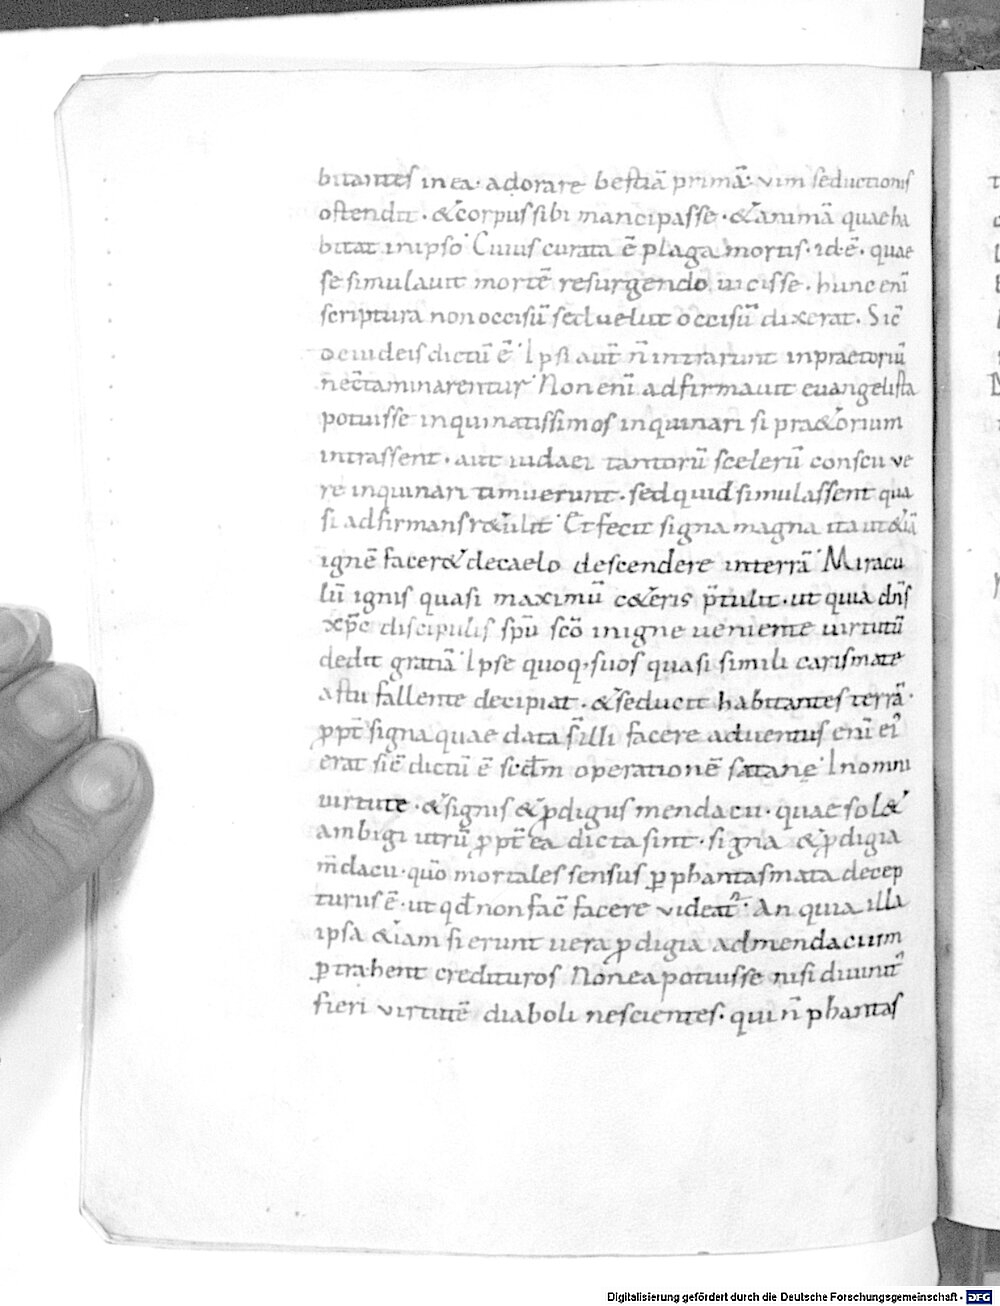 bitantes in ea· adorare bestiā primā· vim seductionis
ostendit· & corpus sibi mancipasse· & animā quae ha
bitat in ipso· Cuius curata ē plaga mortis· id ē· quae
se simulauit mortē resurgendo uicisse· hunc enī
scriptura non occisū sed uelut occisū dixerat· Sic̄
de iudeis dictū ē· Ipsi aut̄ n̄ intrarunt in praetoriū
ne c̄taminarentur· Non enī adfirmauit euangelista
potuisse inquinatissimos inquinari si prae&orium
intrassent· aut iudaei tantorū scelerū conscii ve
re inquinari timuerunt· sed quid simulassent qua
si adfirmans r&ulit· Et fecit signa magna ita ut &iā
ignē facer& de caelo descendere in terrā· Miracu
lū ignis quasi maximū c&eris p̄tulit· ut quia dn̄s
xp̄c discipulis sp̄u sc̄o in igne ueniente uirtutū
dedit gratiā· Ipse quoq· suos quasi simili carismate
astu fallente decipiat· & seducit habitantes terrā·
ꝓpt̄ signa quae data s̄ illi facere aduentus enī ei᾽
erat sic̄ dictū ē sc̄dm operationē satanę· In omni
uirtute· & signis & ꝓdigiis mendacii· quae sol&
ambigi utrū ꝓpt̄ ea dicta sint· signa & ꝓdigia
m̄dacii· quō mortales sensus ꝑ phantasmata decep
turus ē· ut qđ non fac̄ facere videat᾽· An quia illa
ipsa &iam si erunt uera ꝓdigia ad mendacium
ꝑtrahent credituros Non ea potuisse nisi diuinit᾽
fieri virtutē diaboli nescientes· qui n̄ phantas
Digitalisierung gefördert durch die Deutsche Forschungsgemeinschaft - DFG